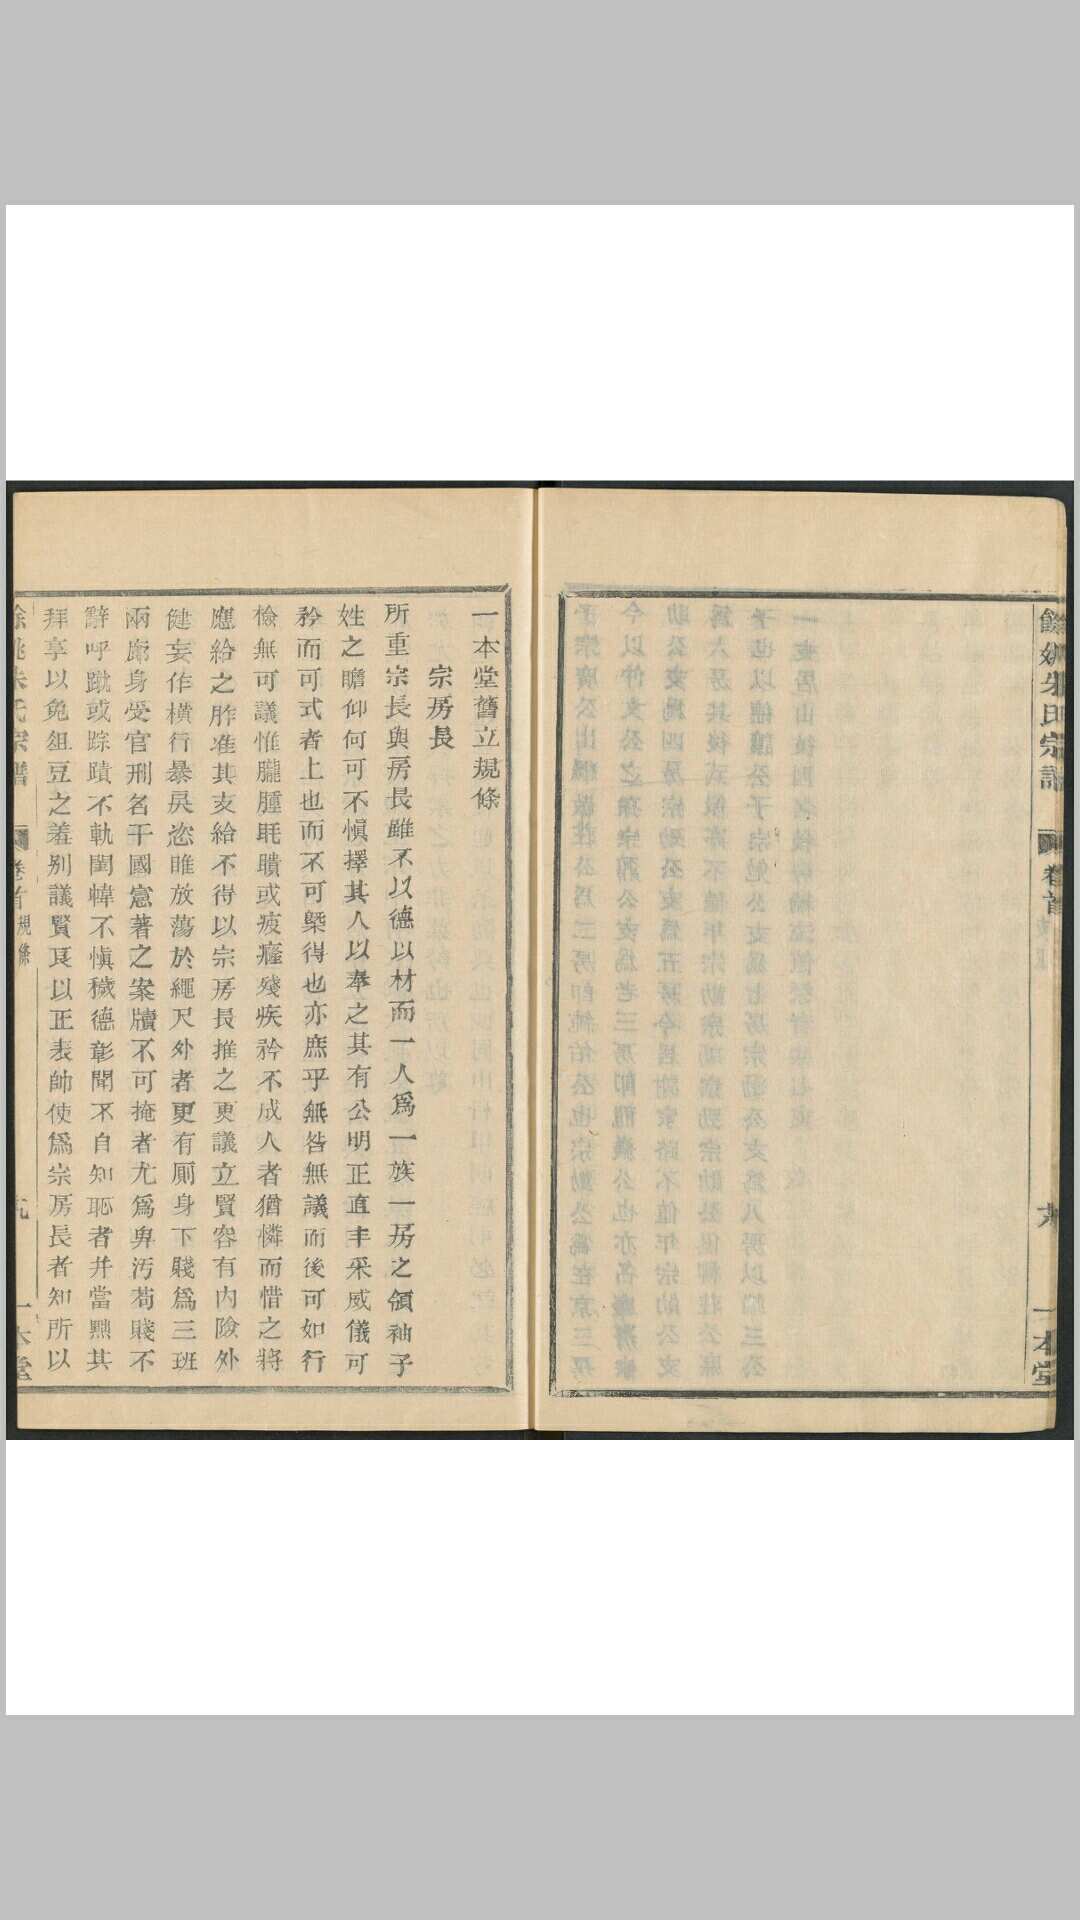 餘姚朱氏宗譜
卷首
一本堂
一本堂舊立規條
宗房長
所重宗長與房長雖不以德以材而一人爲一族一房之領袖子
姓之瞻仰何可不愼擇其人以奉之其有公明正直丰采威儀可
矜而可式者上也而不可槩得也亦庶乎無咎無議而後可如行
檢無可議惟朧腫眊聵或疲癃殘疾矜不成人者猶憐而惜之將
應給之胙准其支給不得以宗房長推之更議立賢容有內險外
健妄作橫行暴戾恣睢放蕩於繩尺外者更有厠身下賤爲三班
兩廊身受官刑名干國憲著之案牘不可掩者尤爲卑汚苟賤不
辭呼蹴或踪蹟不軌閨幃不愼穢德彰聞不自知恥者并當黜其
拜享以免俎豆之羞別議賢良以正表帥使爲宗房長者知所以
餘姚朱氏宗譜
卷首
規條
一本堂